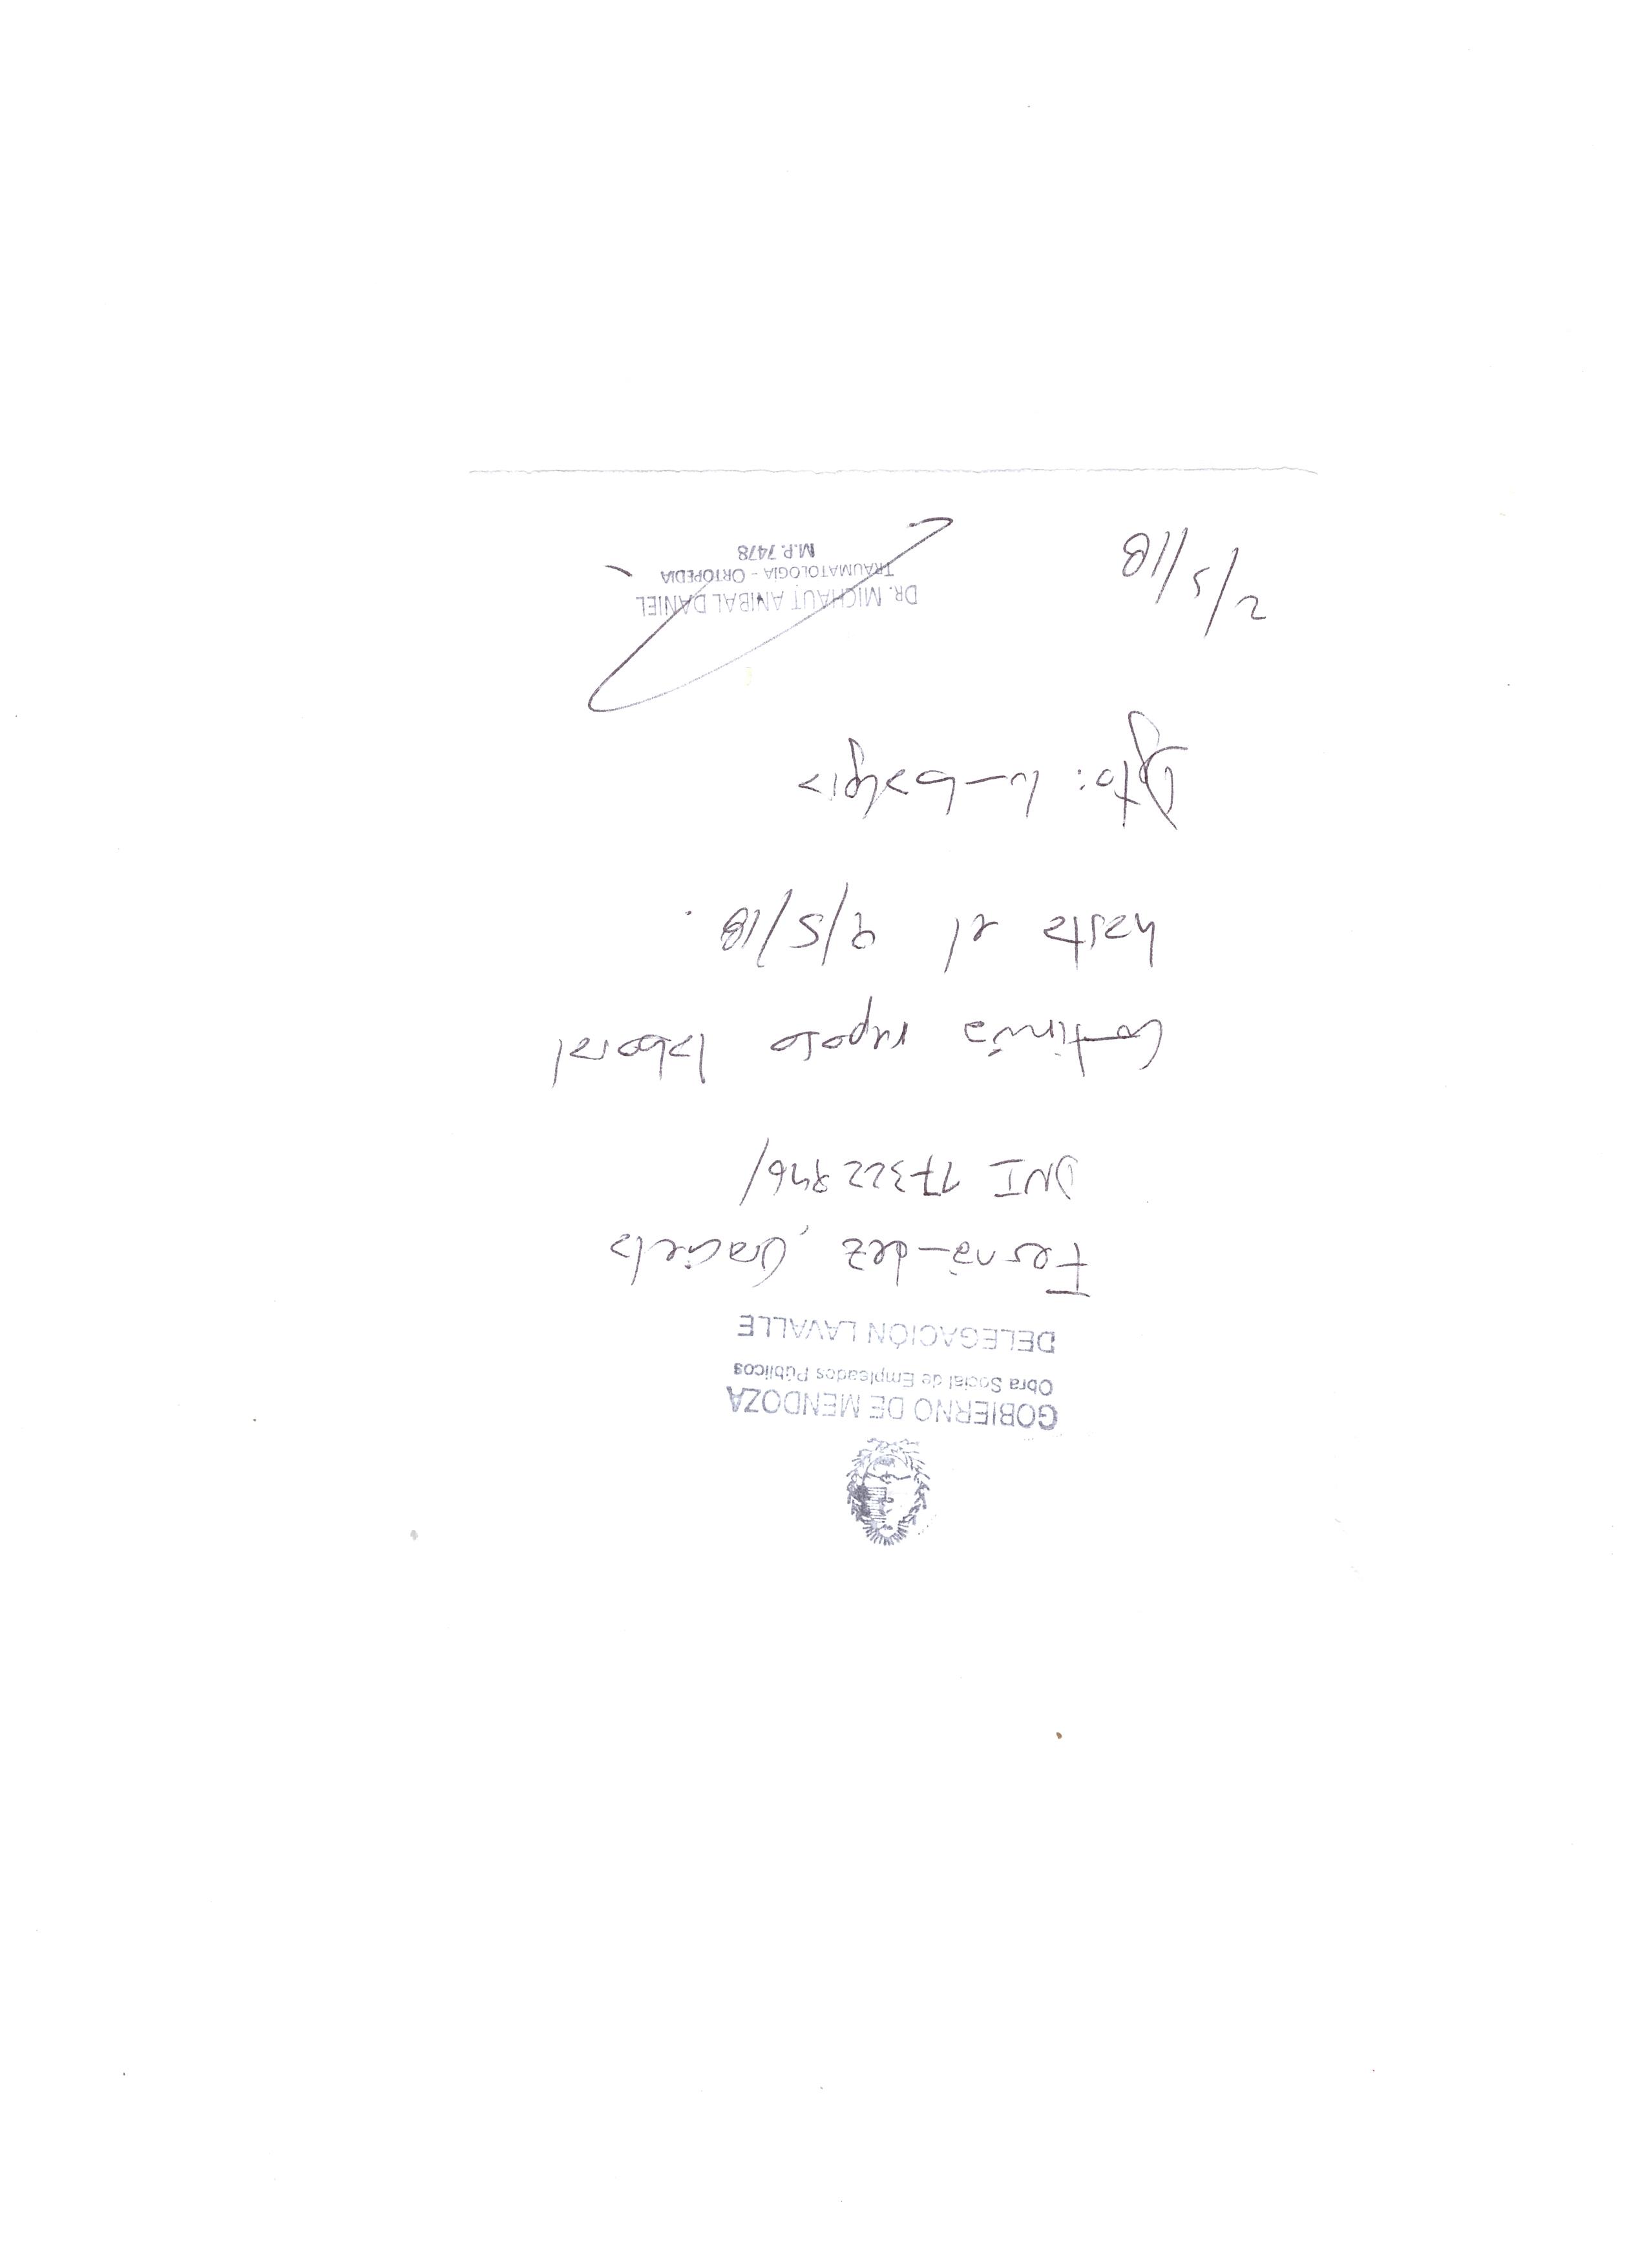 GOBIERNO DE MENDOZA
Obra Social de Empleados Públicos
DELEGACIÓN LAVALLE
Fernández, Graciela
DNI
Continúa reposo laboral
hasta el 9/5/18.
Dgto: lumbalgia
2/5/18
DR. MICHAUT ANIBAL DANIEL
TRAUMATOLOGIA - ORTOPEDIA
M.P. 7478